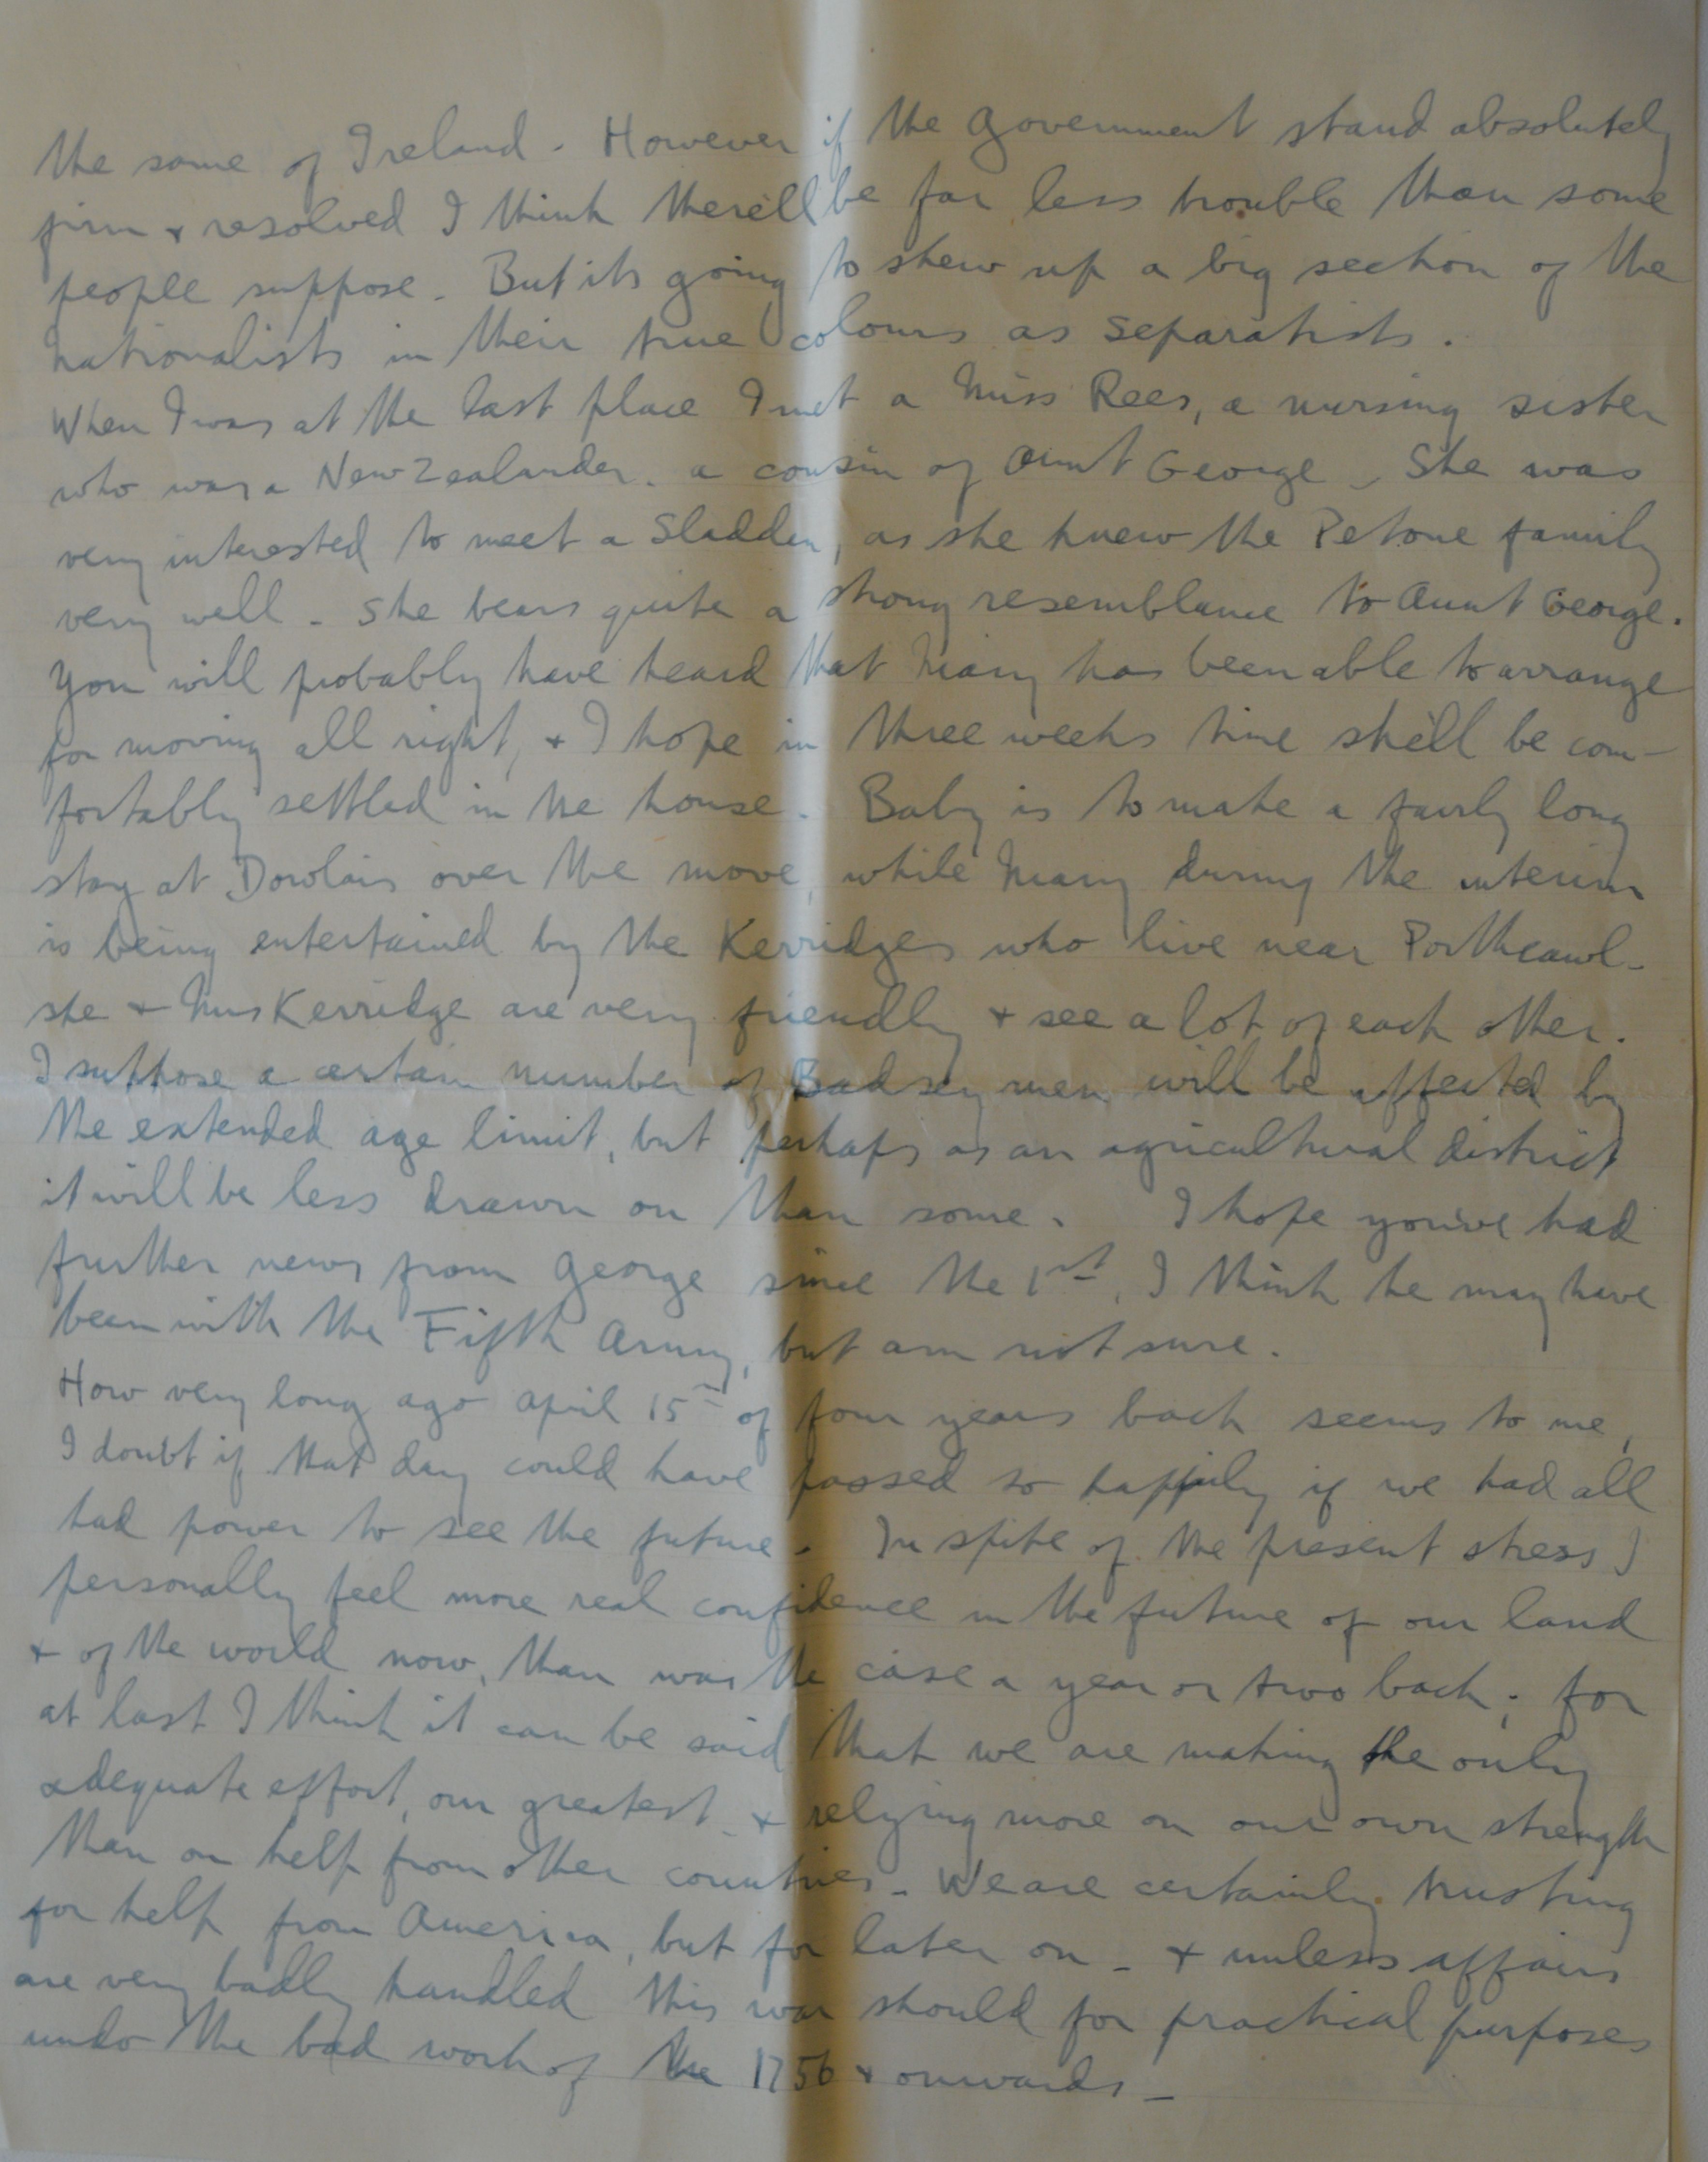 the same of Ireland. However if the Government stand absolutely
firm & resolved I think there'll be far less trouble than some
people suppose. But its going to shew up a big section of the
nationalists in their true colours as separatists.
When I was at the last place I met a Miss Rees, a nursing sister
who was a New Zealander. a cousin of Aunt George. She was
very interested to meet a Sladden, as she knew the Petone family
very well. She bears quite a strong resemblance to Aunt George.
You will probably have heard that Mary has been able to arrange
for moving all right, & I hope in three weeks time she'll be com-
fortably settled in the house. Baby is to make a fairly long
stay at Dowlais over the move, while Mary during the interim
is being entertained by the Kerridges who live near Porthcawl.
she & Mrs Kerridge are very friendly & see a lot of each other.
I suppose a certain number of Badsey men will be affected by
the extended age limit, but perhaps as an agricultural district
it will be less drawn on than some. I hope you've had
further news from George since the 1st, I think he may have
been with the Fifth Army, but am not sure.
How very long ago April 15th of four years back seems to me,
I doubt if that day could have passed so happily if we had all
had power to see the future. In spite of the present stress I
personally feel more real confidence in the future of our land
& of the world now, than was the case a year or two back; for
at last I think it can be said that we are making the only
adequate effort, our greatest & relying more on our own strength
than on help from other countries. We are certainly trusting
for help from America, but for later on - & unless affairs
are very badly handled this war should for practical purposes
undo the bad work of the 1756 & onwards -